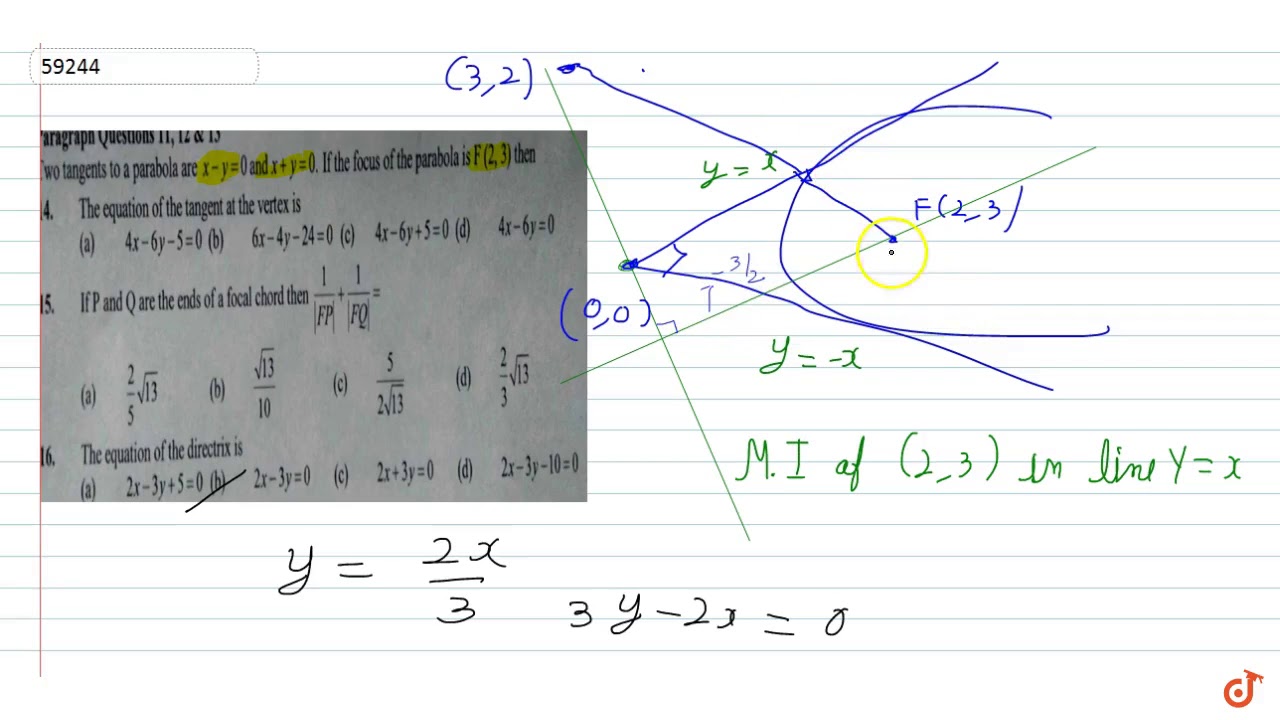 59244
aragraph Questions 11, 12 & 13
wo tangents to a parabola are x – y = 0 and x + y = 0. If the focus of the parabola is F (2, 3) then
4. The equation of the tangent at the vertex is
(a) 4x – 6y – 5 = 0 (b) 6x – 4y – 24 = 0 (c) 4x – 6y + 5 = 0 (d) 4x – 6y = 0
15. If P and Q are the ends of a focal chord then 1/|FP| + 1/|FQ| =
(a) 2/5 √13 (b) √13/10 (c) 5/2√13 (d) 2/3 √13
16. The equation of the directrix is
(a) 2x – 3y + 5 = 0 (b) 2x – 3y = 0 (c) 2x + 3y = 0 (d) 2x – 3y – 10 = 0
(3, 2)
y = x
F(2, 3)
-3/2
(0, 0)
y = -x
M.I of (2, 3) in line Y = x
y = 2x/3
3y - 2x = 0